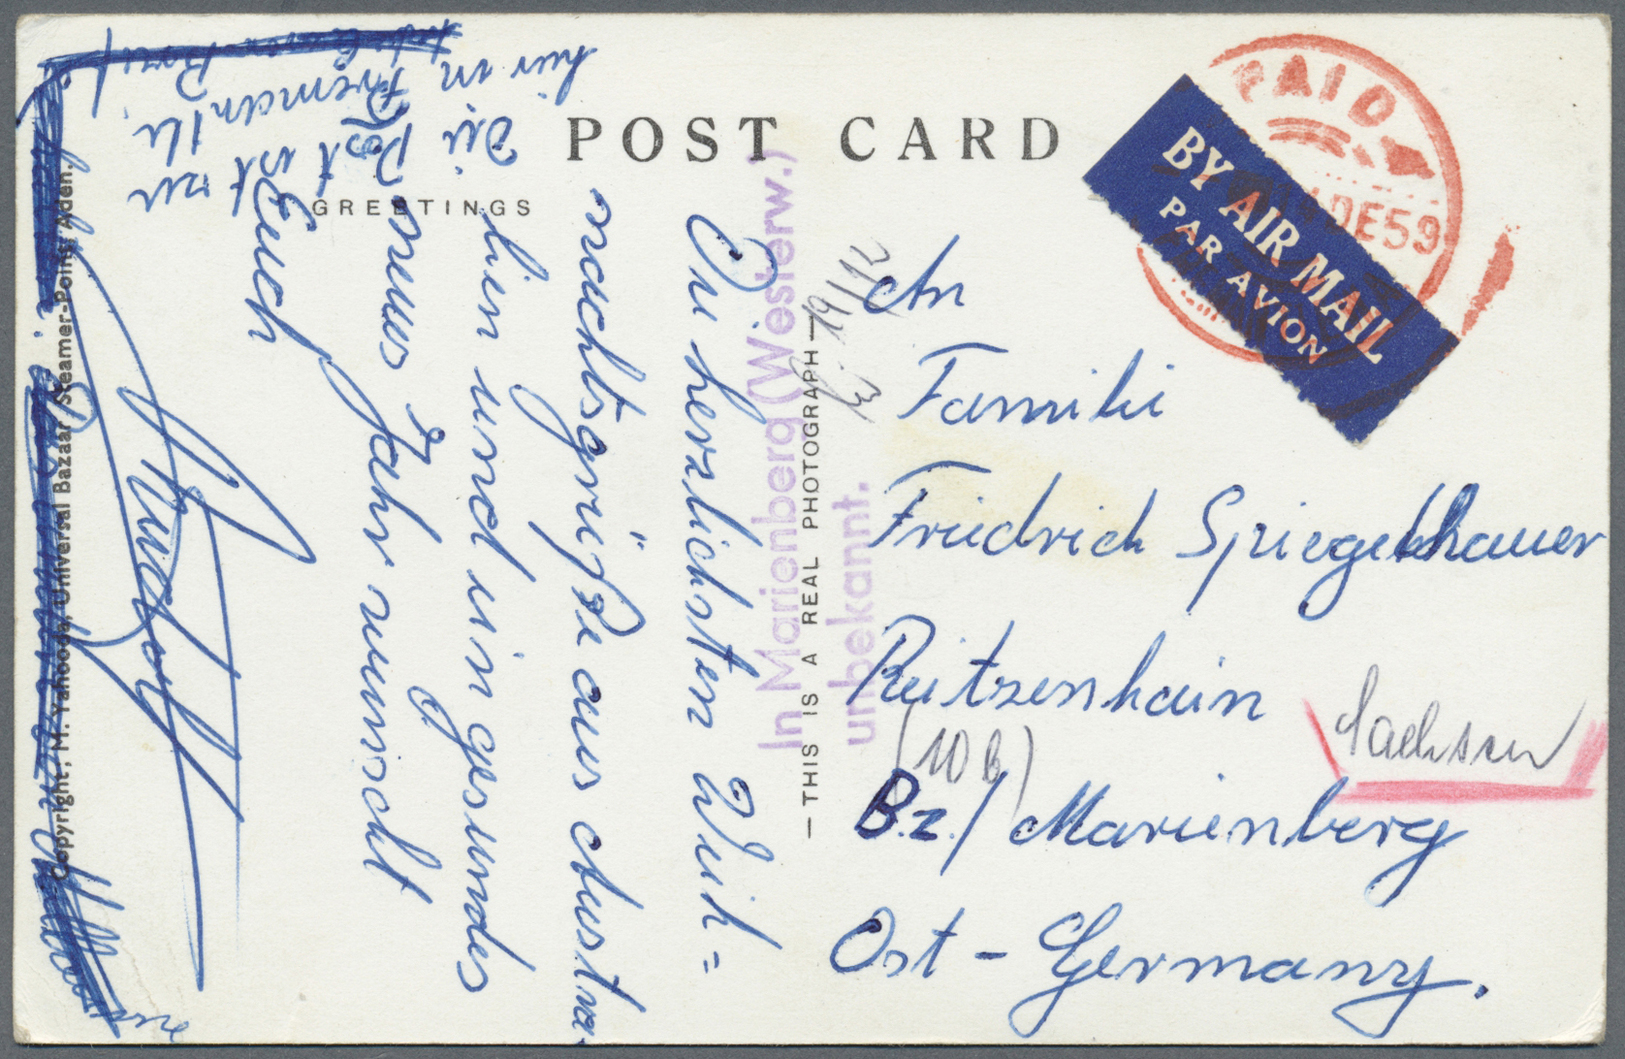 POST CARD
GREETINGS
PAID
DE59
BY AIR MAIL
PAR AVION
Die herzlichsten Weih=
nachtsgrüße aus Austra
lien und ein gesundes
neues Jahr wünscht
Euch
Rudolf
hier in
Die
Fremantle
Post
ist
nur
In Marienberg (Westerw.)
unbekannt.
— THIS IS A REAL PHOTOGRAPH —
19/12
An
Familie
Friedrich Spiegelhauer
Reitzenhain
Sachsen
(10 b)
Bz./ Marienberg
Ost - Germany.
Copyright, M. Yahooda, Universal Bazaar Steamer-Point Aden.